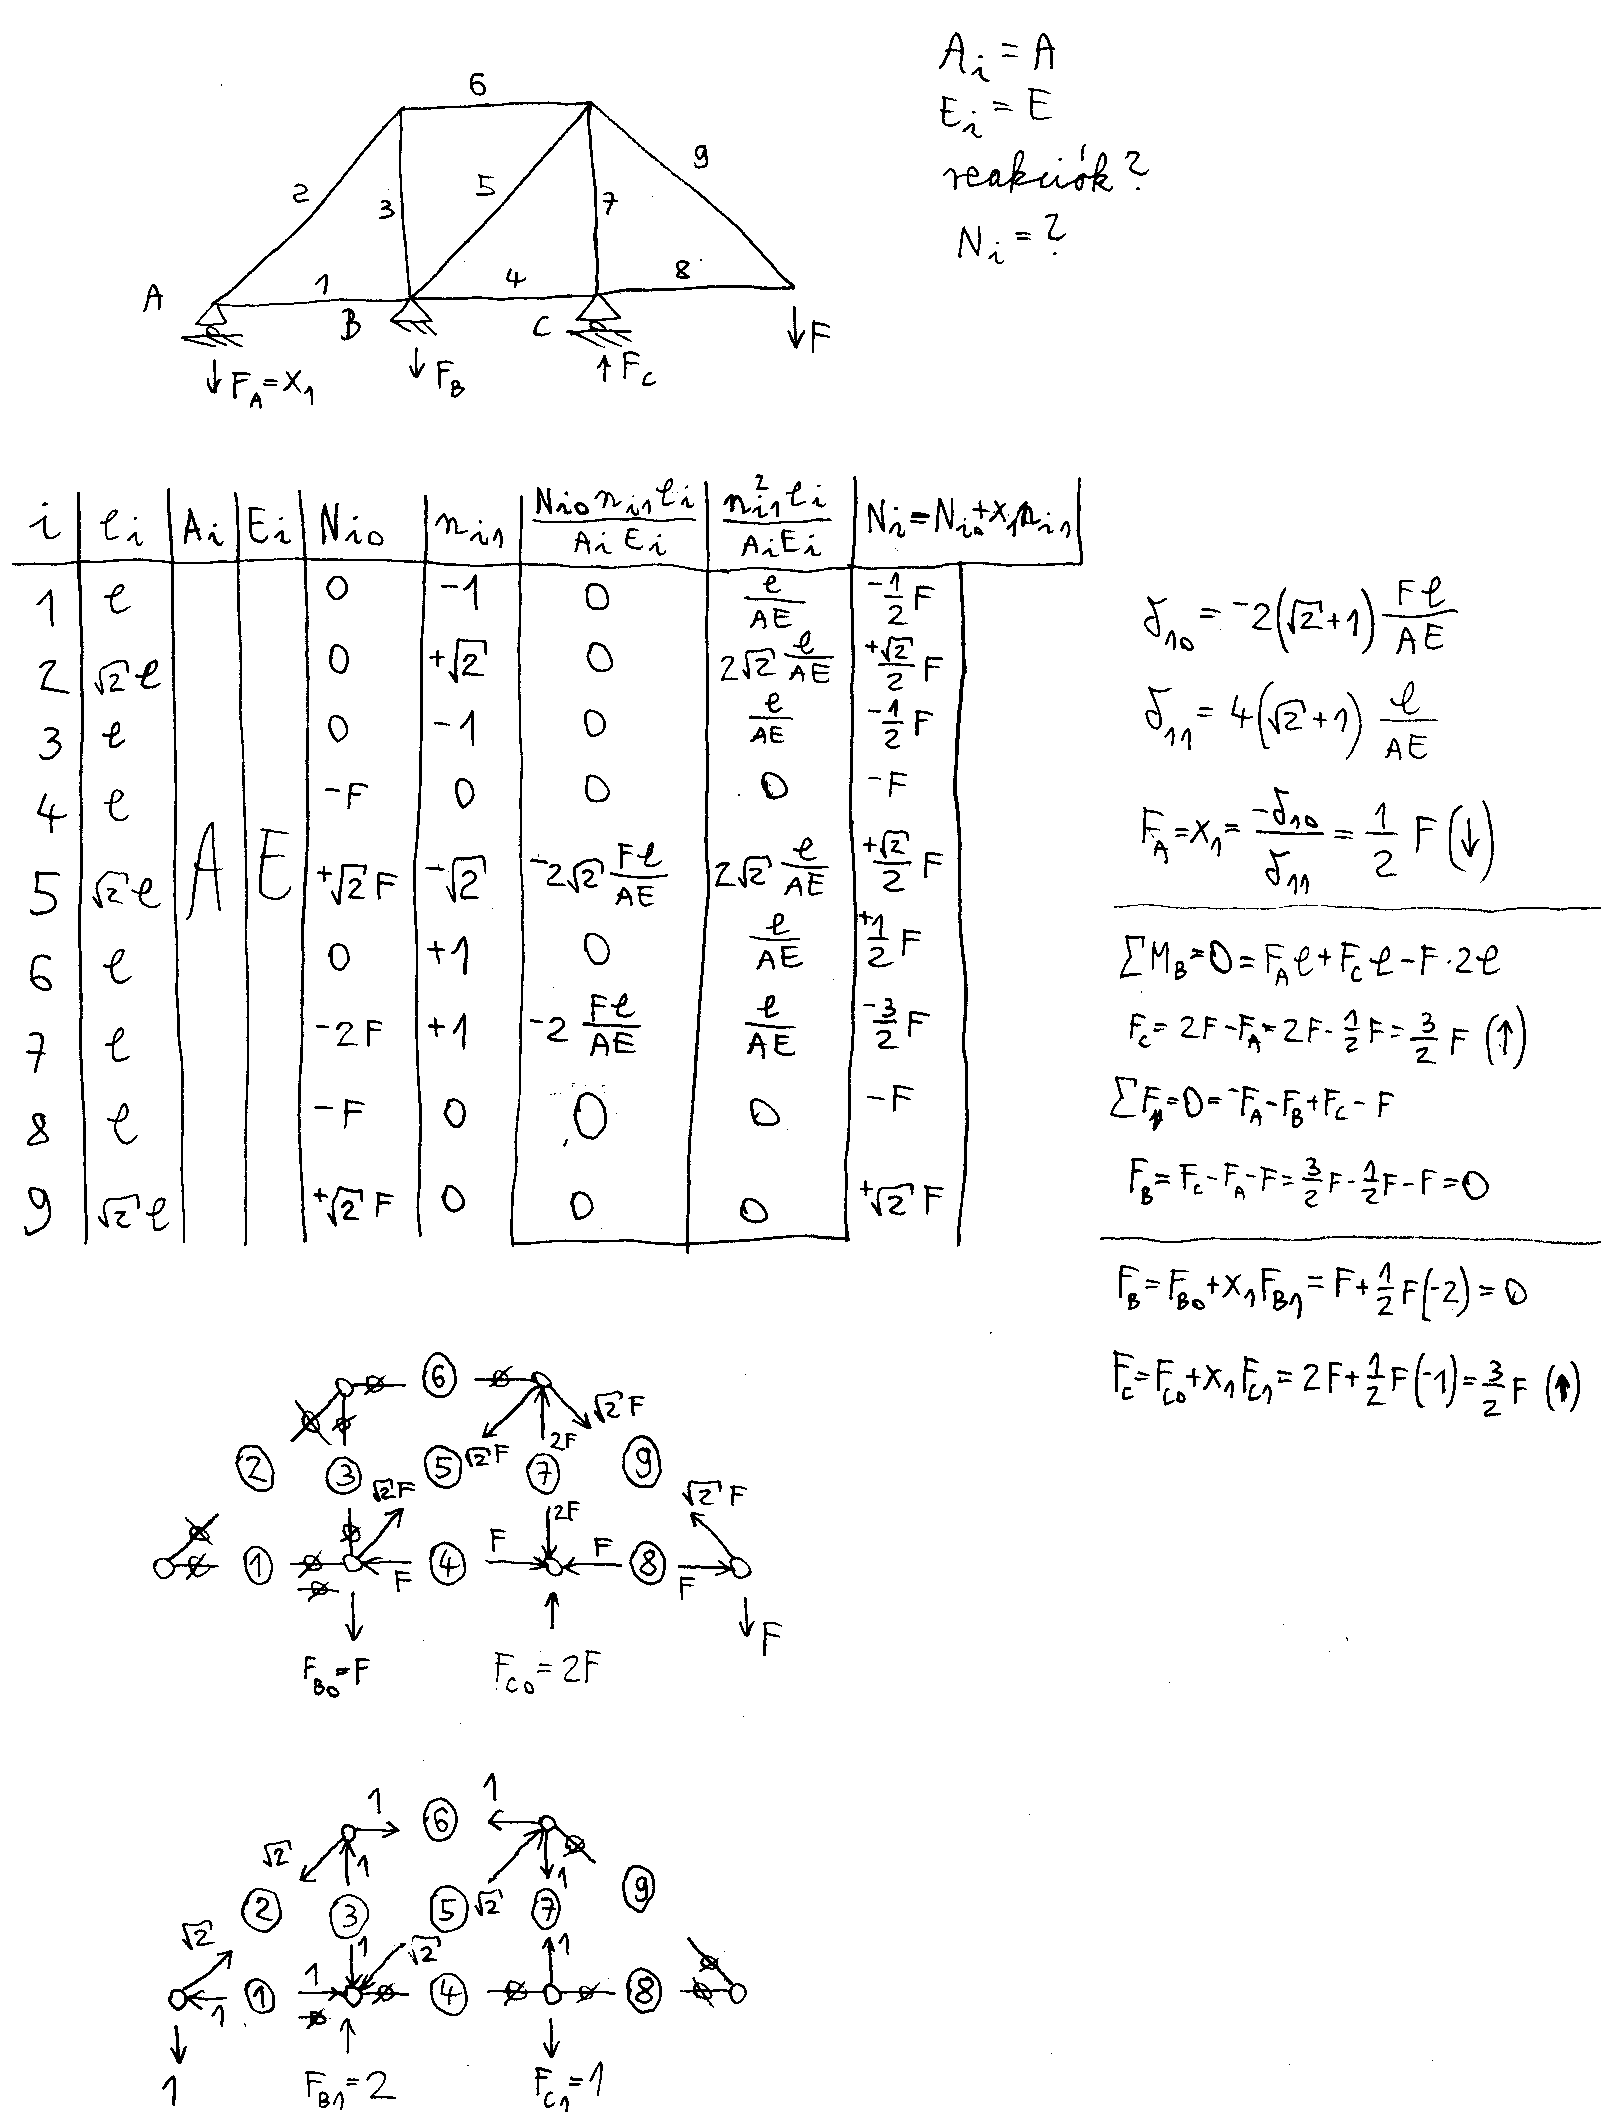 A_i = A
E_i = E
reakciók?
N_i = ?
6
2
3
5
7
9
1
4
8
A
B
C
F
F_A = X_1
F_B
F_C
i | l_i | A_i | E_i | N_i0 | n_i1 | N_i0 n_i1 l_i / A_i E_i | n_i1² l_i / A_i E_i | N_i = N_i0 + X_1 n_i1
1 | l | A | E | 0 | -1 | 0 | l/AE | -1/2 F
2 | √2 l | 0 | +√2 | 0 | 2√2 l/AE | +√2/2 F
3 | l | 0 | -1 | 0 | l/AE | -1/2 F
4 | l | -F | 0 | 0 | 0 | -F
5 | √2 l | +√2 F | -√2 | -2√2 Fl/AE | 2√2 l/AE | +√2/2 F
6 | l | 0 | +1 | 0 | l/AE | +1/2 F
7 | l | -2F | +1 | -2 Fl/AE | l/AE | -3/2 F
8 | l | -F | 0 | 0 | 0 | -F
9 | √2 l | +√2 F | 0 | 0 | 0 | +√2 F
δ_10 = -2(√2+1) Fl/AE
δ_11 = 4(√2+1) l/AE
F_A = X_1 = -δ_10/δ_11 = 1/2 F (↓)
ΣM_B = 0 = F_A l + F_C l - F·2l
F_C = 2F - F_A = 2F - 1/2 F = 3/2 F (↑)
ΣF_y = 0 = -F_A - F_B + F_C - F
F_B = F_C - F_A - F = 3/2 F - 1/2 F - F = 0
F_B = F_B0 + X_1 F_B1 = F + 1/2 F(-2) = 0
F_C = F_C0 + X_1 F_C1 = 2F + 1/2 F(-1) = 3/2 F (↑)
∅ 6 ∅
∅ ∅ √2F
√2F 2F
2 3 5 7 9
√2F 2F √2F
∅ ∅ F F
∅ 1 ∅ 4 8
∅ F F
F
F_B0 = F
F_C0 = 2F
1 6 1
√2 1 ∅ 1
2 3 5 √2 7 9
√2 1 √2 1 ∅
1 1 1 ∅ 4 ∅ ∅ 8 ∅
∅
1
F_B1 = 2
F_C1 = 1